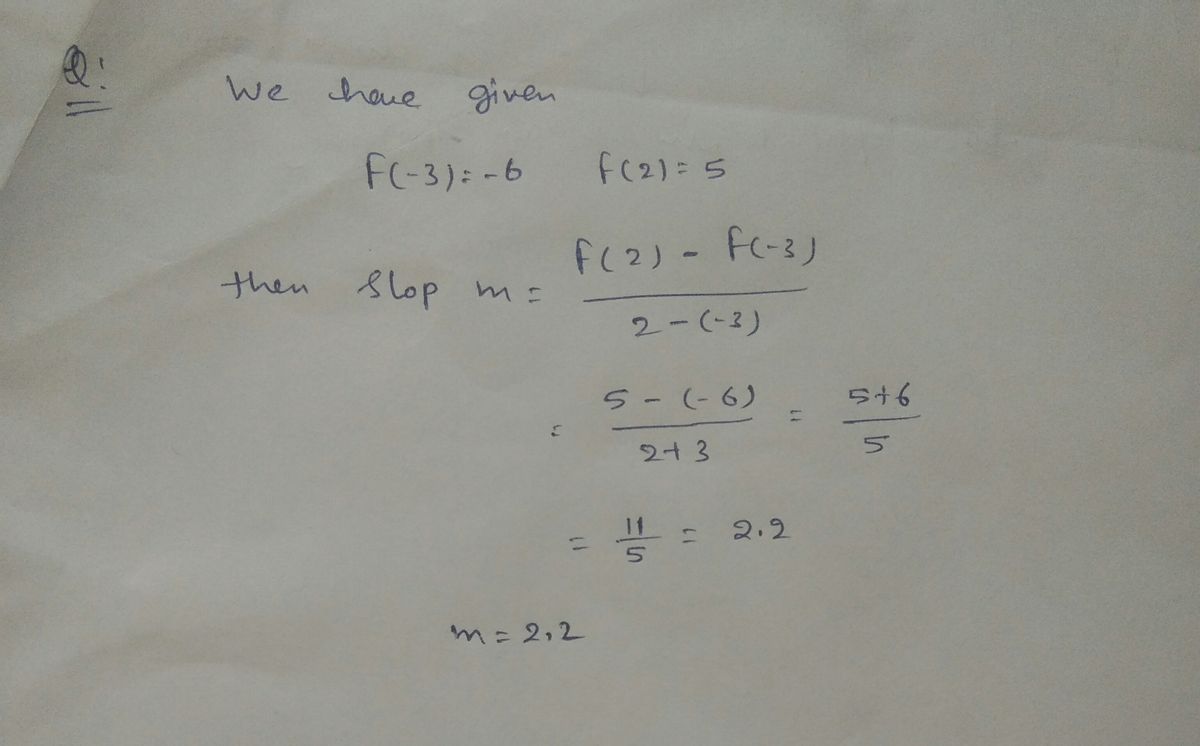 Q:
We have given
f(-3) = -6 f(2) = 5
then Slop m = f(2) - f(-3) / 2 - (-3)
= 5 - (-6) / 2+3 = 5+6 / 5
= 11/5 = 2.2
m = 2.2